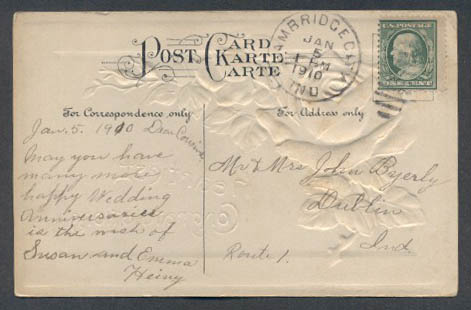 POST CARD
KARTE
CARTE
CAMBRIDGE CITY
JAN
5
1 PM
1910
IND
U.S. POSTAGE
ONE CENT
For Correspondence only
For Address only
Jan. 5. 1910 Dear Cousins
May you have
many more
happy Wedding
Anniversaries
is the wish of
Susan and Emma
Heiny
Mr & Mrs John Byerly
Dublin
Route 1. Ind